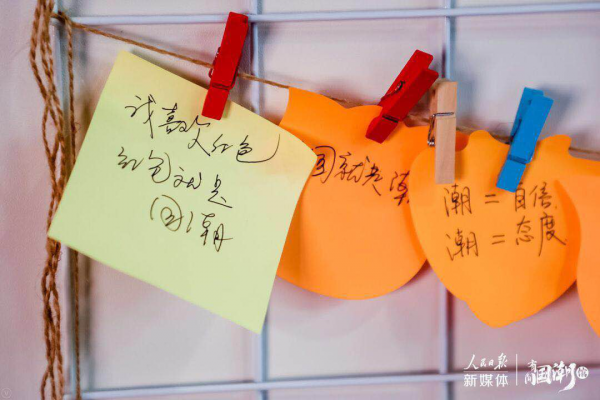 我喜欢红色
红色就是
(国)潮
国就是潮
潮=自信
潮=态度
人民日报
新媒体
有间国潮馆